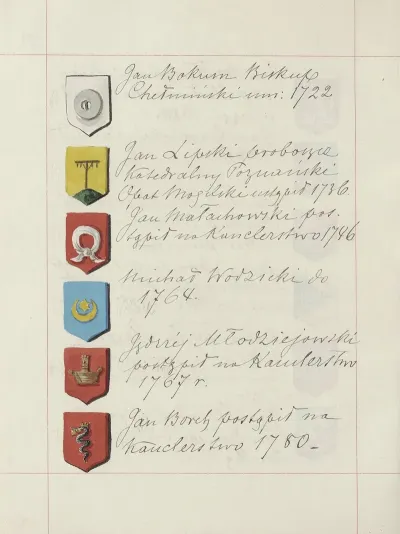 Jan Bokum Biskup
Chełmiński um: 1722
Jan Lipski Proboszcz
Katedralny Poznański
Opat Mogilski ustąpił 1736
Jan Małachowski pos.
tąpił na Kanclerstwo 1746
Michał Wodzicki do
1764.
Jędrzéj Młodziejowski
postąpił na Kanclerstwo
1767 r.
Jan Borch postąpił na
Kanclerstwo 1780 –